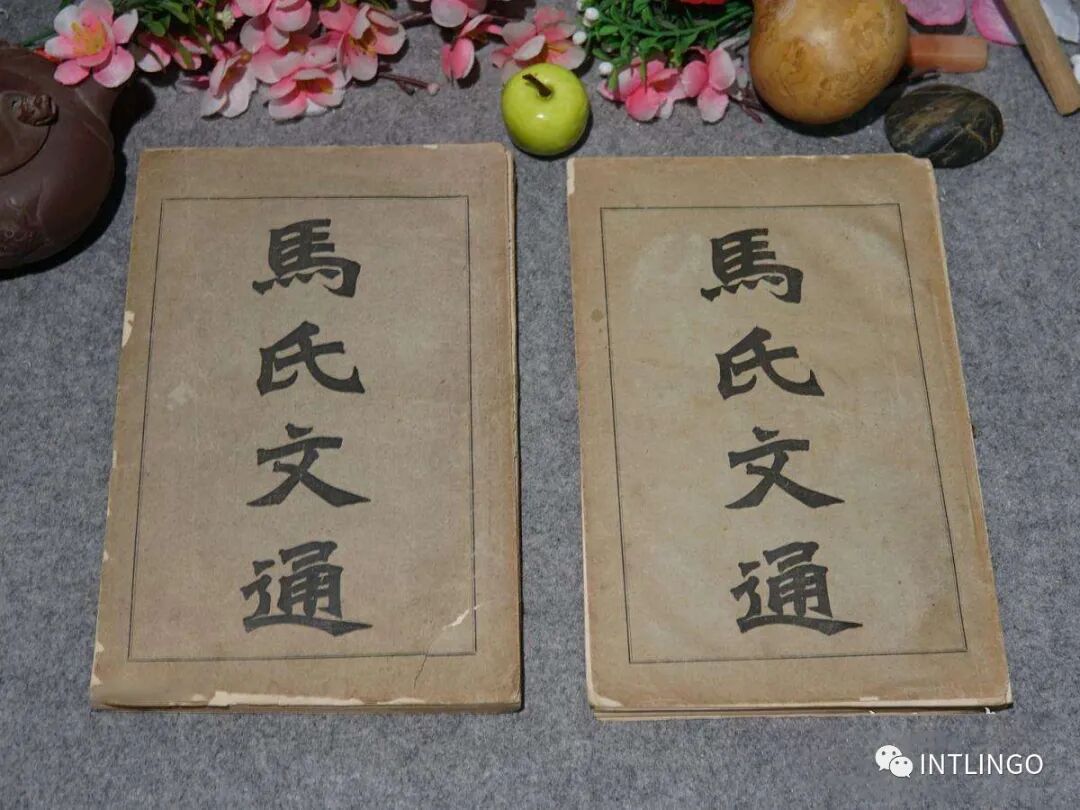 馬氏文通
馬氏文通
INTLINGO